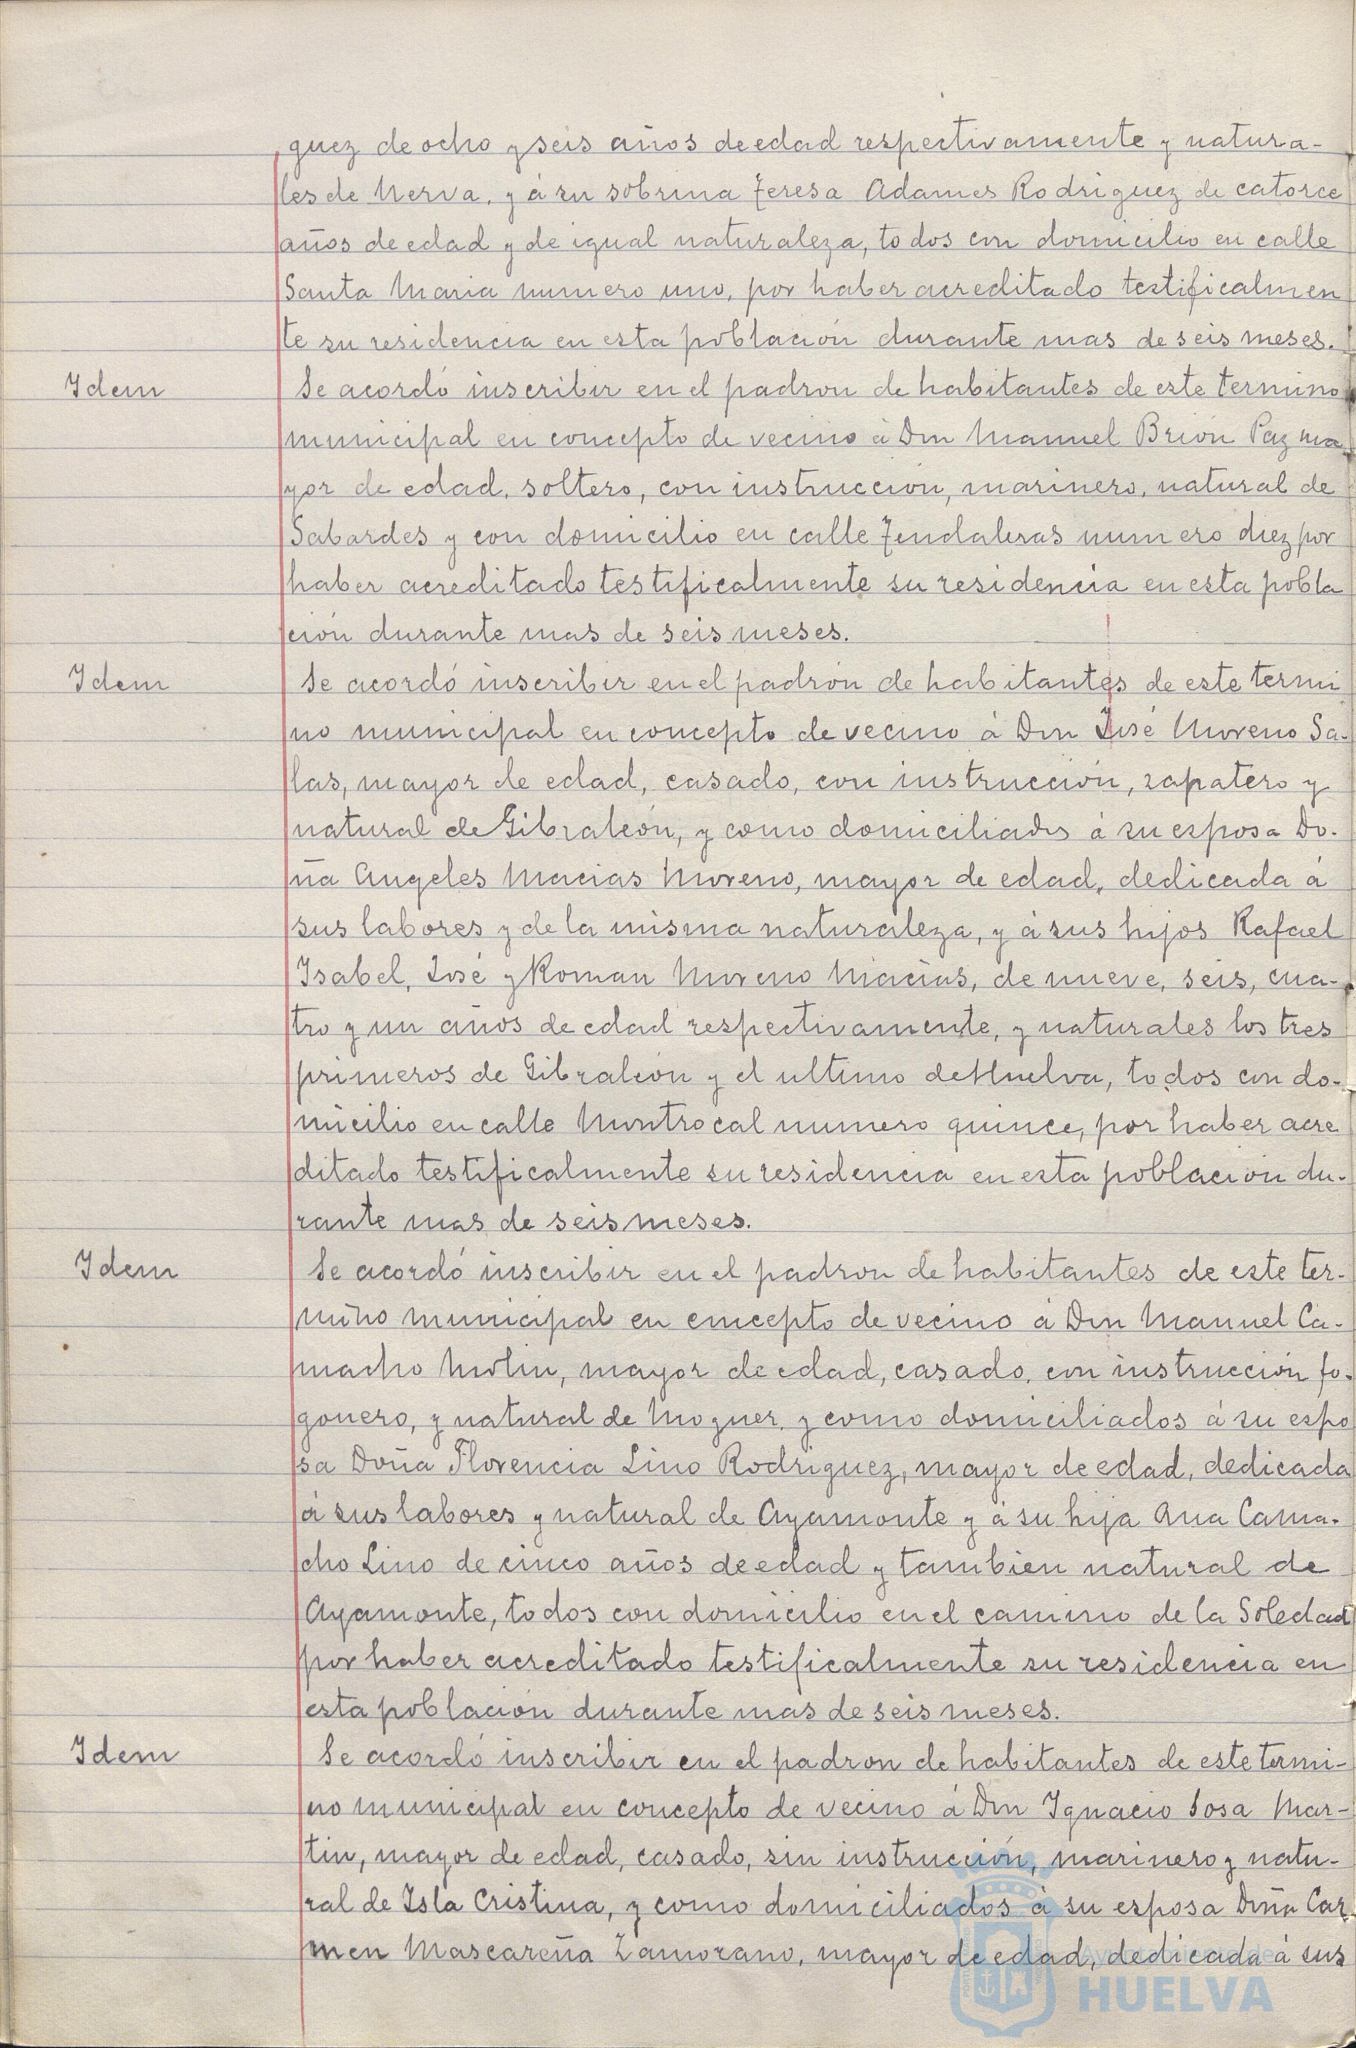 guez de ocho y seis años de edad respectivamente y natura-
les de Nerva, y á su sobrina Teresa Adames Rodriguez de catorce
años de edad y de igual naturaleza, todos con domicilio en calle
Santa Maria numero uno, por haber acreditado testificalmen
te su residencia en esta población durante mas de seis meses.
Idem
Se acordó inscribir en el padron de habitantes de este termino
municipal en concepto de vecino á Don Manuel Brión Paz ma
yor de edad, soltero, con instrucción, marinero, natural de
Sabardes y con domicilio en calle Tendaleras numero diez por
haber acreditado testificalmente su residencia en esta pobla
ción durante mas de seis meses.
Idem
Se acordó inscribir en el padrón de habitantes de este termi
no municipal en concepto de vecino á Don José Moreno Sa-
las, mayor de edad, casado, con instrucción, zapatero y
natural de Gibraleón, y como domiciliados á su esposa Do-
ña Angeles Macias Moreno, mayor de edad, dedicada á
sus labores y de la misma naturaleza, y á sus hijos Rafael
Isabel, José y Roman Moreno Macias, de nueve, seis, cua-
tro y un años de edad respectivamente, y naturales los tres
primeros de Gibraleón y el ultimo de Huelva, todos con do-
micilio en calle Montrocal numero quince, por haber acre
ditado testificalmente su residencia en esta población du-
rante mas de seis meses.
Idem
Se acordó inscribir en el padron de habitantes de este ter-
mino municipal en concepto de vecino á Don Manuel Ca-
macho Molin, mayor de edad, casado, con instrucción fo-
gonero, y natural de Moguer, y como domiciliados á su espo
sa Doña Florencia Lino Rodriguez, mayor de edad, dedicada
á sus labores y natural de Ayamonte y á su hija Ana Cama-
cho Lino de cinco años de edad y tambien natural de
Ayamonte, todos con domicilio en el camino de la Soledad
por haber acreditado testificalmente su residencia en
esta población durante mas de seis meses.
Idem
Se acordó inscribir en el padron de habitantes de este termi-
no municipal en concepto de vecino á Don Ignacio Sosa Mar-
tin, mayor de edad, casado, sin instrucción, marinero y natu-
ral de Isla Cristina, y como domiciliados á su esposa Doña Car
men Mascareña Zamorano, mayor de edad, dedicada á sus
Ayuntamiento de
HUELVA